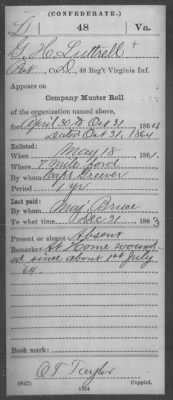 (CONFEDERATE.)
L 48 Va.
G. H. Luttrell +
Pvt, Co. D, 48 Reg't Virginia Inf.
Appears on
Company Muster Roll
of the organization named above,
for April 30 to Oct 31, 1864
dated Oct 31, 1864
Enlisted:
When May 18, 1861.
Where 7 mile ford
By whom Capt Greever
Period 1 yr
Last paid:
By whom Maj. Bruce
To what time Dec 31, 1863
Present or absent Absent
Remarks: At Home wound
ed since about 1st July
64
Book mark:
C T Taylor
(642) Copyist.